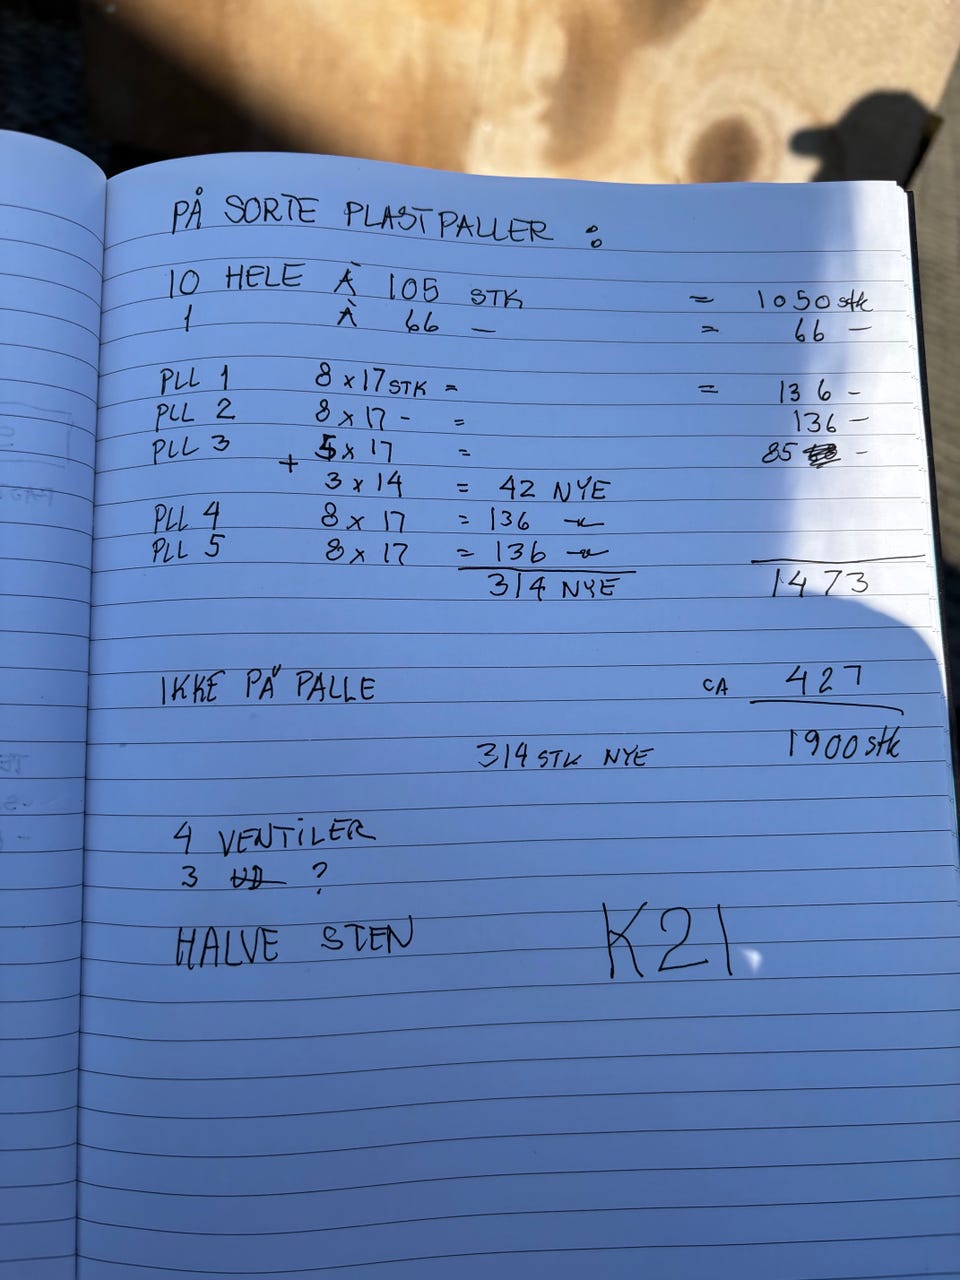 PÅ SORTE PLASTPALLER :
10 HELE À 105 STK = 1050 stk
1 À 66 — = 66 —
PLL 1 8 x 17 STK = = 136 —
PLL 2 8 x 17 - = 136 —
PLL 3 5 x 17 = 85 -
+ 3 x 14 = 42 NYE
PLL 4 8 x 17 = 136 —
PLL 5 8 x 17 = 136 —
314 NYE 1473
IKKE PÅ PALLE CA 427
314 STK NYE 1900 stk
4 VENTILER
3 ?
HALVE STEN K21